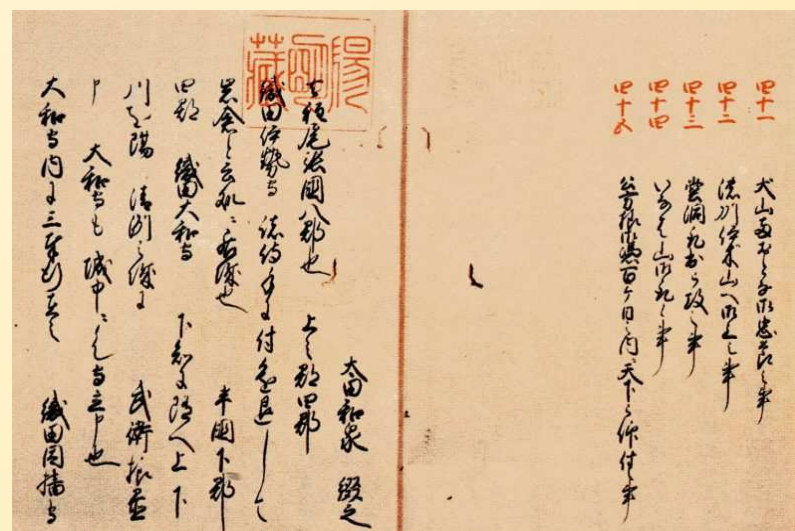 四十一 犬山両おとな御忠節之事
四十二 濃州伊木山へ御上之事
四十三 堂洞取出被攻之事
四十四 いなは山御取候事
四十五 公方様御憑百ヶ日之内天下被仰付候事
陽明蔵
太田和泉 綴之
去程尾張国八郡也 上之郡四郡
織田伊勢守 諸将手に付進退して
岩倉と云処に居城也 半国下郡
四郡 織田大和守 下知に随へ上下
川を隔 清洲之城に 武衛様置
申 大和守も 城中に候て守立申也
大和守内に三奉行在之 織田因幡守